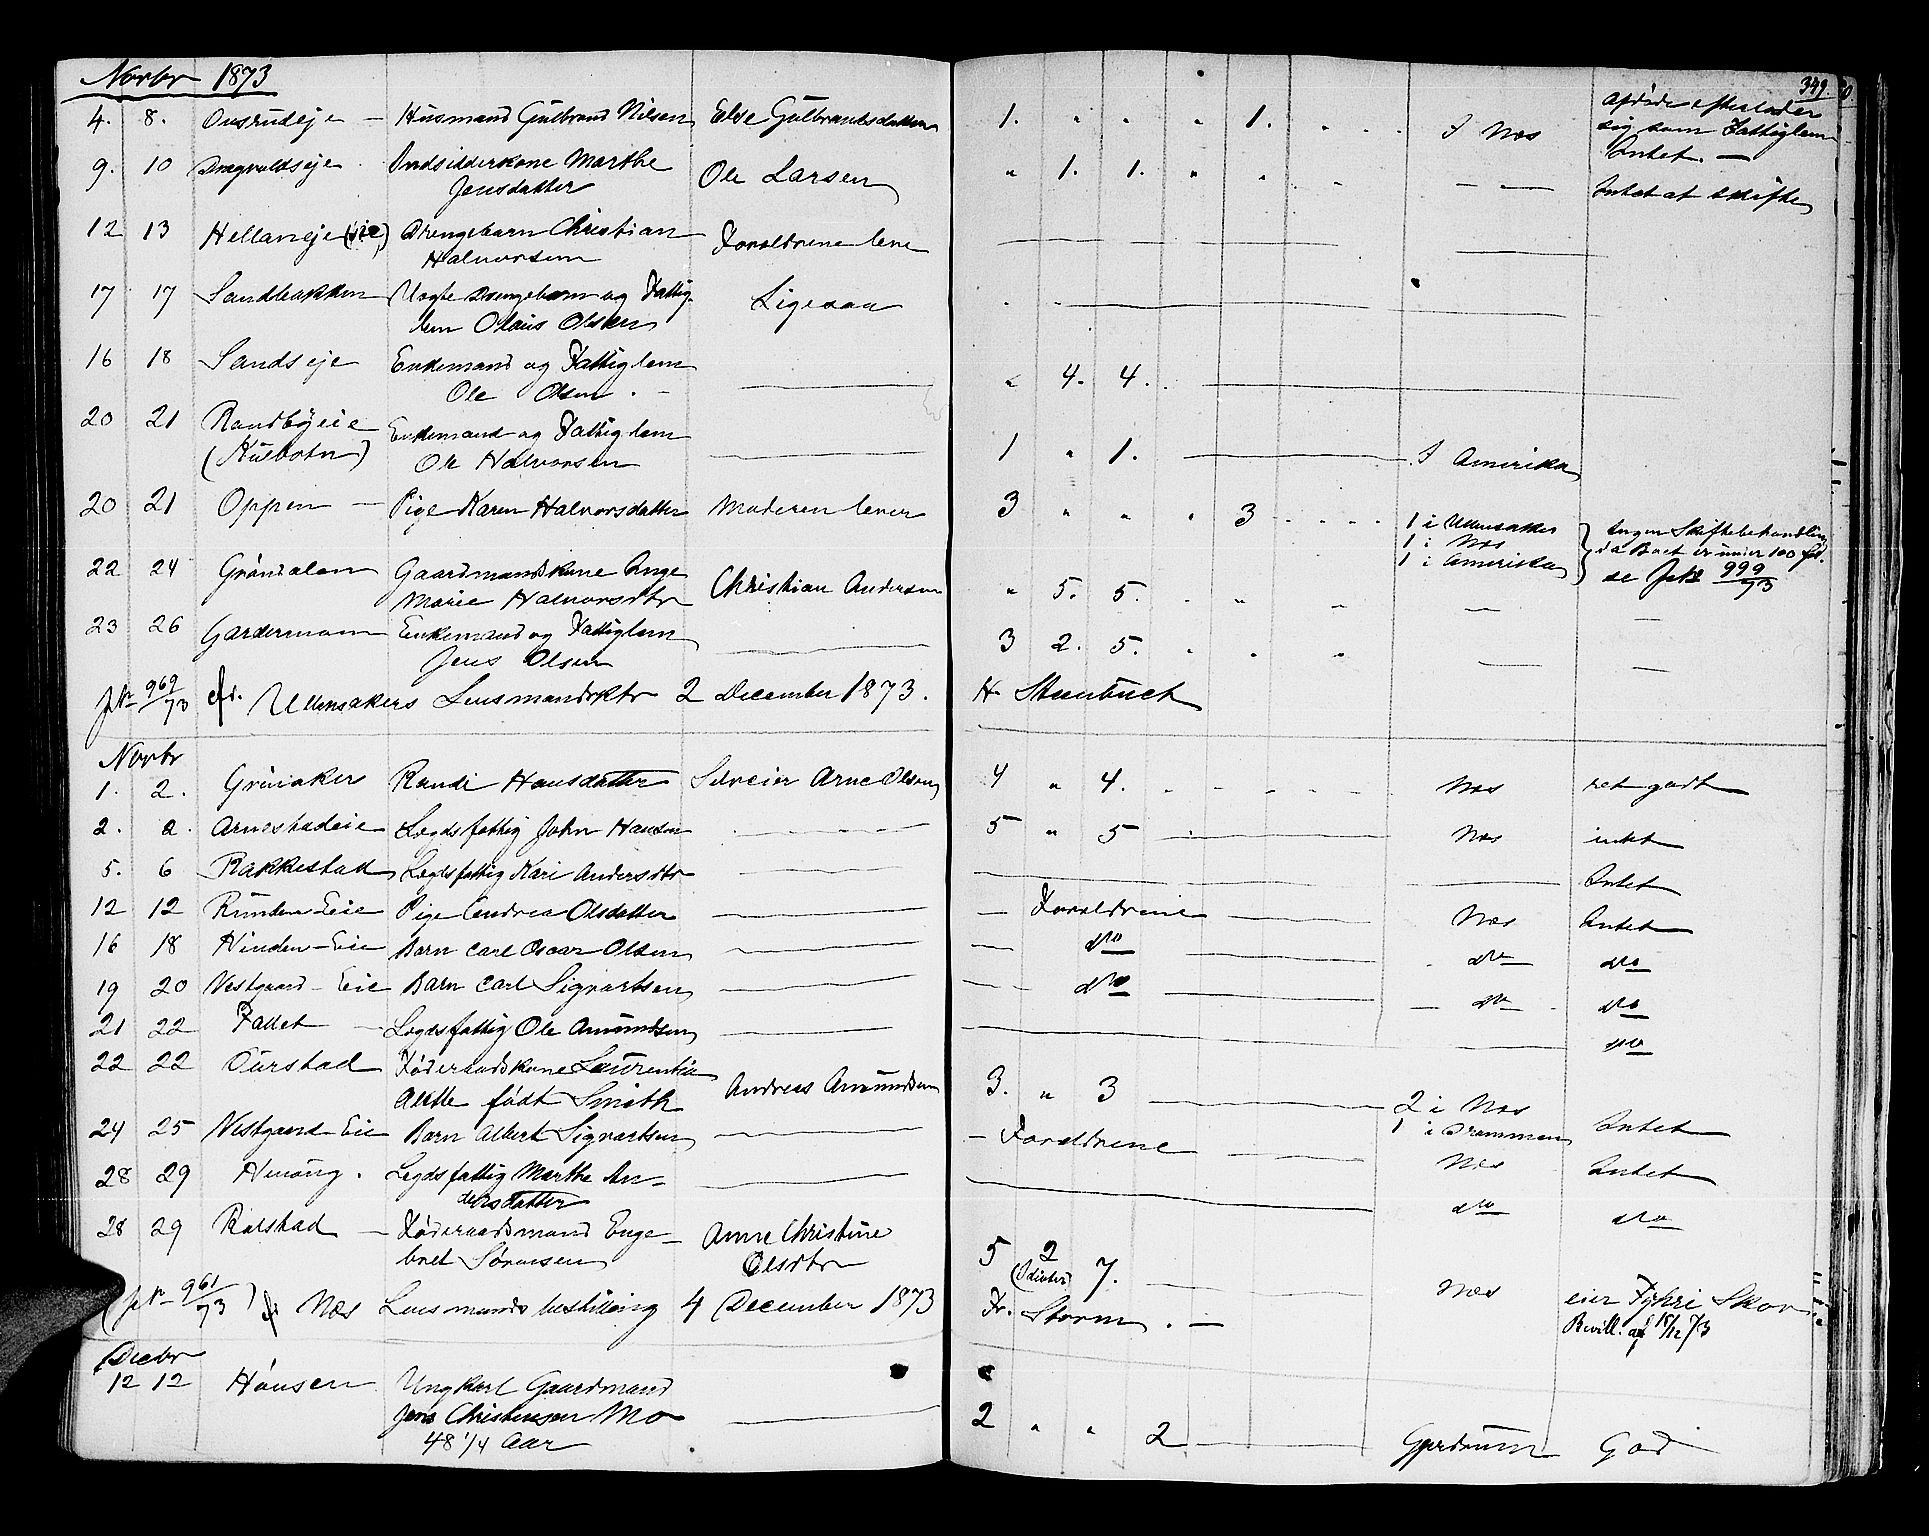 Novbr 1873
349.
4. 8. Onsrudeje — Husmand Gulbrand Nilsen Else Gulbrandsdatter 1. " " " 1. I Næs Afdøde efterlader
sig som Fattiglem
Intet. —
9. 10 Dragvoldseje Indsidderkone Marthe
Jensdatter Ole Larsen " 1. 1. " " — — Intet at skifte
12 13 Hellaneje Drengebarn Christian
Halvorsen Forældrene leve
17 17 Sandbakken Uægte Drengebarn og Fattig-
lem Olaus Olsen Ligesaa
16 18 Sandseje Enkemand og Fattiglem
Ole Olsen. — " 4. 4.
20 21 Randbyeie
(Hulbotn) Enkemand og Fattiglem
Ole Halvorsen 1 " 1. I Amerika
20 21 Oppen — Pige Karen Halvorsdatter Moderen lever 3 " " " 3 1 i Ullensaker
1 i Næs
1 i Amerika Ingen Skiftebehandling
da Boet er under 100 Spd.
se J№ 999/73
22 24 Gråndalen Gaardmandskone Inge
Marie Halvorsdtr Christian Andersen " 5. 5. " —
23 26 Gardermoen Enkemand og Fattiglem
Jens Olsen 3 2. 5. — —
J№ 969/73 fr. Ullensakers Lensmandsktr 2 December 1873. H. Steenbuch
Novbr
1. 2. Grinakers Randi Hansdatter Selveier Arne Olsen 4 " 4. Næs ret godt
2. 2. Arnestadeie Lægdsfattig John Hansen 5 " 5 Næs intet
5. 6 Rakkestad Lægdsfattig Kari Andersdtr Intet
12 12 Runden Eie Pige Andrea Olsdatter — Forældrene Næs Intet
16 18 Hinden-Eie Barn Carl Oscar Olsen — do do do
19 20 Vestgaard-Eie Barn Carl Sigvartsen — do — do do
21 22 Fallet — Lægdsfattig Ole Amundsen do
22 22 Aurstad Føderaadskone Laurentia
Alette født Smith Andreas Amundsen 3. " 3 2 i Næs
1 i Drammen Intet
24 25 Vestgaard Eie Barn Albert Sigvartsen — Forældrene Næs Intet
28 29 Henäng. Lægdsfattig Marthe An-
dersdatter do do
28 29 Rolstad — Føderaadsmand Enge-
bret Sørensen Anne Christine
Olsdtr 5 2 7. Næs eier Fyhri Skov
Bevill. af 15/12 73
(J№ 961/73) fr Næs Lensmands bestilling 4 December 1873 Fr. Storm. —
Decbr
12 12 Hånsen Ungkarl Gaardmand
Jens Christensen Mo
48 1/4 Aar 2 " " 2 Gjerdrum God